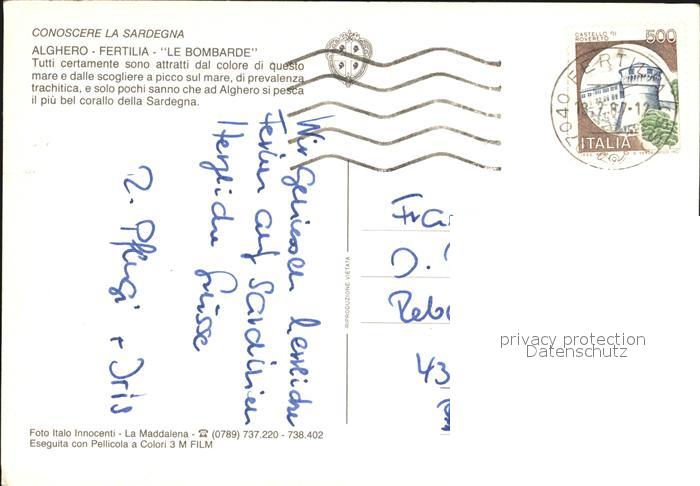 CONOSCERE LA SARDEGNA
ALGHERO - FERTILIA - "LE BOMBARDE"
Tutti certamente sono attratti dal colore di questo
mare e dalle scogliere a picco sul mare, di prevalenza
trachitica, e solo pochi sanno che ad Alghero si pesca
il più bel corallo della Sardegna.
Wir geniessen herrliche
Ferien auf Sardinien
Herzliche Grüsse
+ Iris
Foto Italo Innocenti - La Maddalena - ☎ (0789) 737.220 - 738.402
Eseguita con Pellicola a Colori 3 M FILM
RIPRODUZIONE VIETATA
CASTELLO DI
ROVERETO
500
ITALIA
7040 FERTILIA
43
privacy protection
Datenschutz